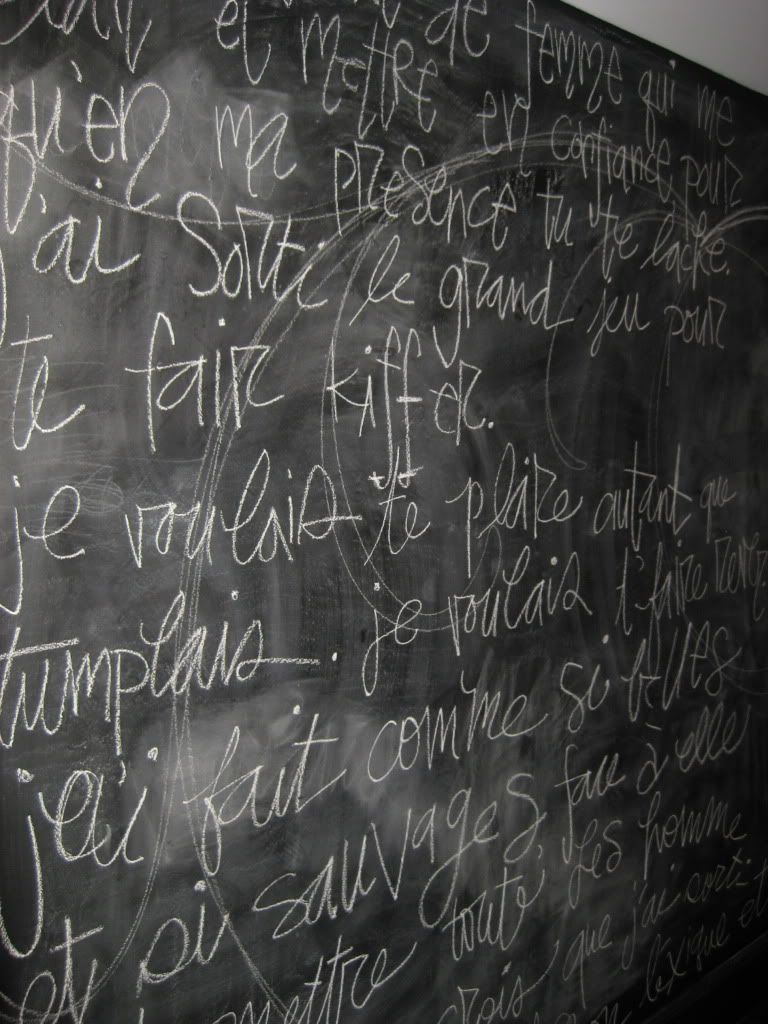 et mettre de femme qui me
qu'en ma présence en confiance pour
j'ai sorti le grand jeu pour tu te lache.
te fair kiffer.
je voulais te plaire autant que
tumplais. je voulais t'faire rever.
j'ai fait comme si belles
et si sauvages, face à elle
mettre toute les homme
crois que j'ai sorti
lexique et